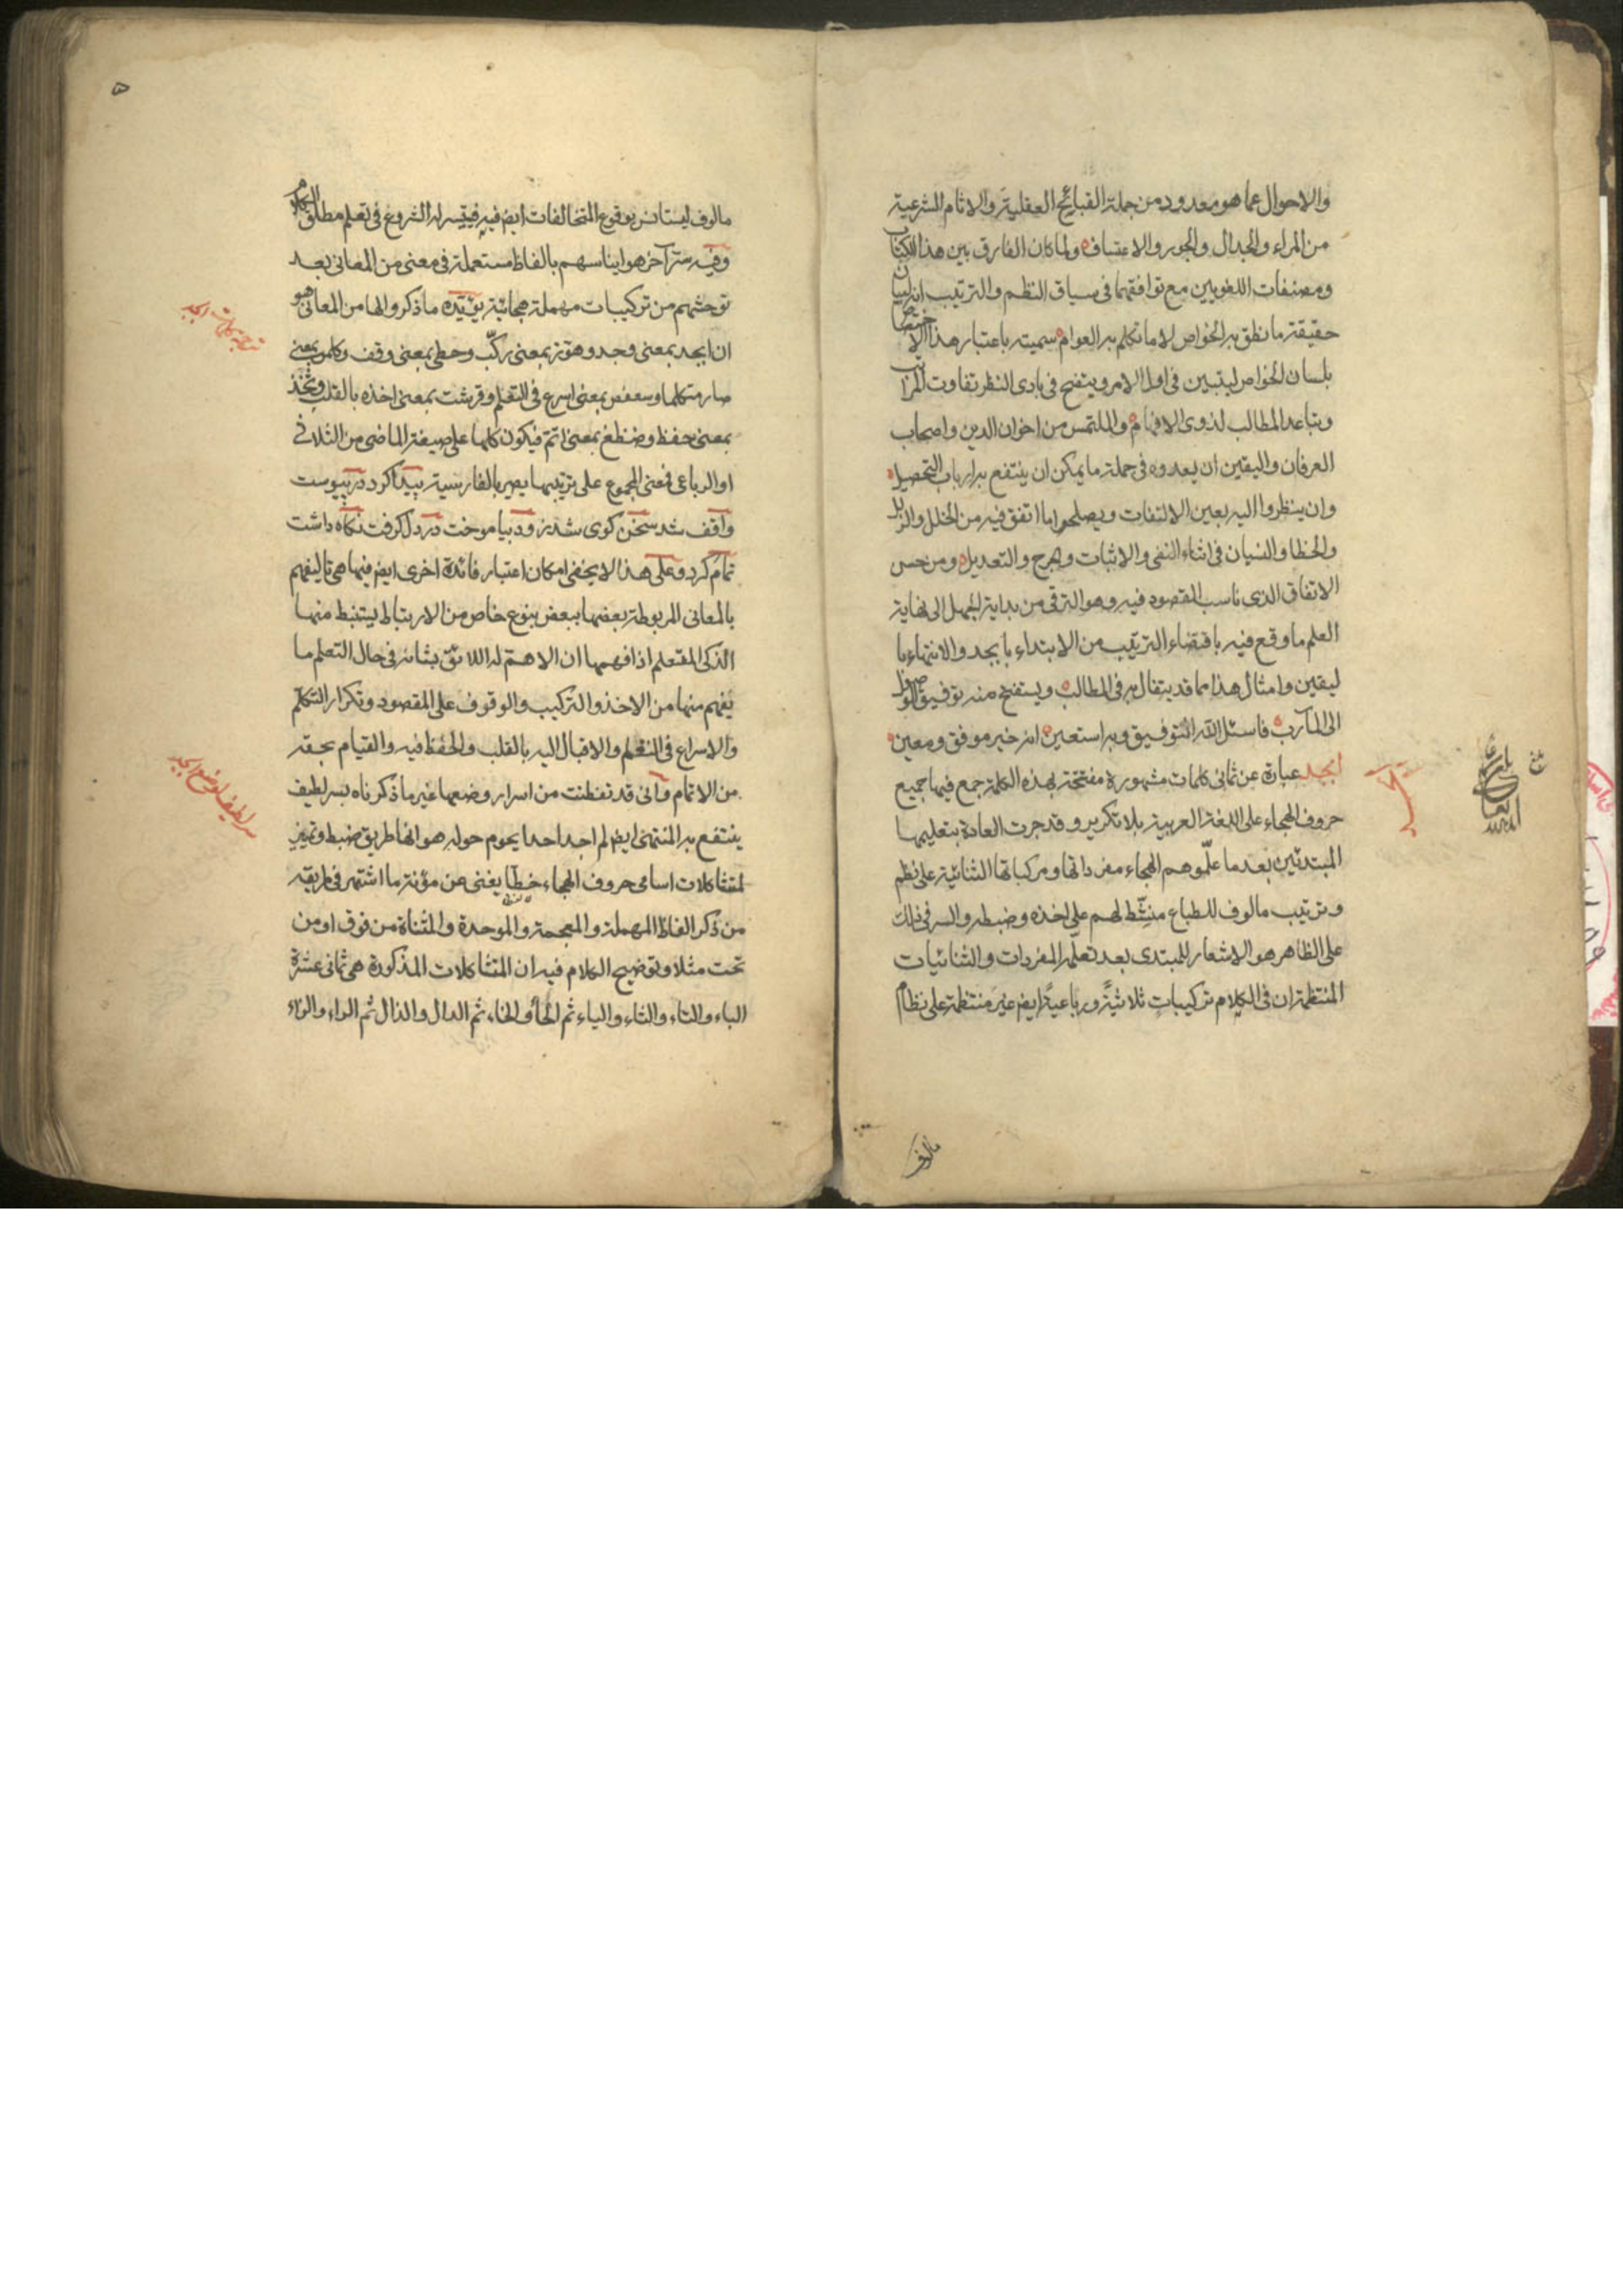 والاحوال عما هو معدود من جملة القبايح العقلية والاثام الشرعية
من المراء والجدال والجور والاعتساف ولما كان الفارق بين هذا الكتاب
ومصنفات اللغويين مع توافقهما فى سياق النظم والترتيب انه لسان
حقيقة ما نطق به الخواص لا ما تكلم به العوام سميته باعتبار هذا الاختصاص
بلسان الخواص ليتبين فى اول الامر ويتضح فى بادى النظر تفاوت المراتب
وتباعد المطالب لذوى الافهام والملتمس من اخوان الدين واصحاب
العرفان واليقين ان يعدوه فى جملة ما يمكن ان ينتفع به ارباب التحصيل
وان ينظروا اليه بعين الالتفات ويصلحوا ما اتفق فيه من الخلل والزلل
والخطا والنسيان فى اثناء النفى والاثبات والجرح والتعديل ومن حسن
الاتفاق الذى ناسب المقصود فيه وهو الترقى من بداية الجهل الى نهاية
العلم ما وقع فيه باقتضاء الترتيب من الابتداء بابجد والانتهاء با
ليقين وامثال هذا مما قد يتفال به فى المطالب ويستفتح منه توفيق الوصول
الى المآرب فاسئل الله التوفيق وبه استعين انه خير موفق ومعين
ابجد عبارة عن ثمانى كلمات مشهورة مفتتحة بهذه الكلمة جمع فيها جميع
حروف الهجاء على اللغة العربية بلا تكرير وقد جرت العادة بتعليمها
المبتدئين بعد ما علّموهم الهجاء مفرداتها ومركباتها الثنائية على نظم
وترتيب مالوف للطباع منشّط لهم على اخذه وضبطه والسر فى ذلك
على الظاهر هو الاشعار للمبتدى بعد تعلّمه المفردات والثنائيات
المنتظمة ان فى الكلام تركيبات ثلاثيةً ورباعيةً ايض غير منتظمة على نظام
مالوف
مالوف ليستانس بوقوع المتخالفات ايض فيه فيتيسر له الشروع فى تعلم مطلق الكلام
وفيه سر آخر هو ايناسهم بالفاظ مستعملة فى معنى من المعانى بعد
توحشهم من تركيبات مهملة هجائية يؤيّده ما ذكروا لها من المعانى هو
ان ابجد بمعنى وجد وهوّز بمعنى ركّب وحطى بمعنى وقف وكلمن بمعنى
صار متكلما وسعفص بمعنى اسرع فى التعلم وقرشت بمعنى اخذه بالقلب وثخذ
بمعنى حفظ وضظغ بمعنى اتمّ فيكون كلها على صيغة الماضى من الثلاثى
او الرباعى فمعنى المجموع على ترتيبها يصير بالفارسية پيدا كرد در پيوست
واقف شد سخن كوى شد زود بياموخت در دل كرفت نكاه داشت
تمام كرد وعلى هذا لا يخفى امكان اعتبار فائدة اخرى ايض فيها هى تاليفهم
بالمعانى المربوطة بعضها ببعض بنوع خاص من الارتباط ليستنبط منها
الذكى المتعلم اذا فهمها ان الاهمّ له اللائق بشانه فى حال التعلم ما
يفهم منها من الاخذ والتركيب والوقوف على المقصود وتكرار التكلم
والاسراع فى التعلم والاقبال اليه بالقلب والحفظ فيه والقيام بحقه
من الاتمام وانى قد تفطنت من اسرار وضعها غير ما ذكرناه بسر لطيف
ينتفع به المنتهى ايض لم اجد احدا يحوم حوله هو انها طريق ضبط وتميز
لمتشاكلات اسامى حروف الهجاء خطّا يغنى عن مؤنة ما اشتهر فى طريقه
من ذكر الفاظ المهملة والمعجمة والموحدة والمثناة من فوق او من
تحت مثلا وتوضيح الكلام فيه ان المتشاكلات المذكورة هى ثمانى عشرة
الباء والتاء والثاء والياء ثم الحاء والخاء ثم الدال والذال ثم الراء والزاء
سر لطيف فى وضع ابجد